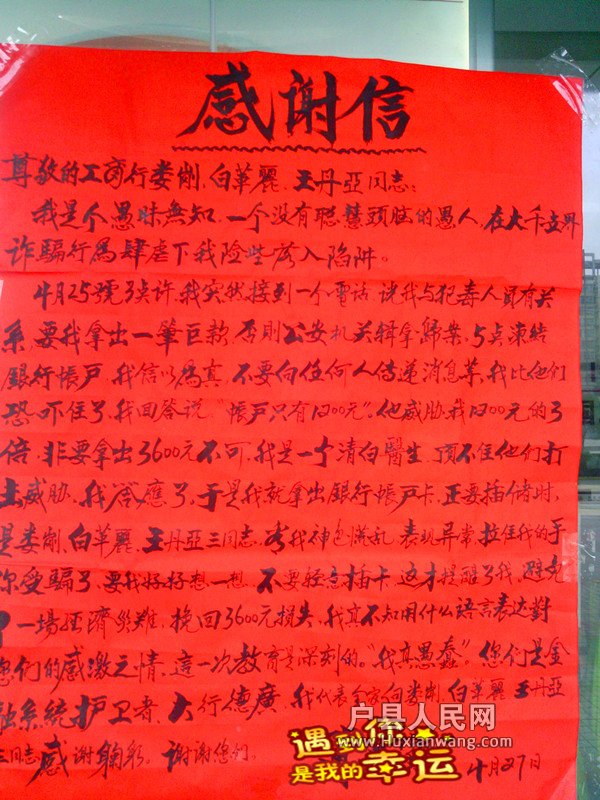 感谢信
尊敬的工商行娄俐、白華麗、王丹亞同志:
我是个愚昧無知,一个没有聪慧頭脑的愚人,在大千世界
诈騙行爲肆虐下我险些落入陷阱。
4月25號3点许,我突然接到一个電话,说我与犯毒人員有关
系,要我拿出一筆巨款,否则公安机关辑拿歸案,5点凍结
銀行帳戸,我信以爲真,不要向任何人传递消息,我比他们
恐吓住了,我回答说"帳戸只有1200元"。他威胁我1200元的3
倍,非要拿出3600元不可,我是一个清白醫生,頂不住他们打
击威胁,我答應了,于是我就拿出銀行帳戸卡,正要插储时,
是娄俐、白華麗、王丹亞三同志,看我神色慌乱,表现异常,拉住我的手
你受騙了,要我好好想一想,不要轻意插卡,这才提醒了我,避免
一場经濟災難,挽回3600元損失,我真不知用什么語言表达對
您们的感激之情,這一次教育是深刻的。"我真愚蠢"。您们是金
融系統护卫者,大行德廣,我代表全家向娄俐、白華麗、王丹亞
三同志感谢鞠躬,谢谢您们。
遇到你
是我的幸运
4月27日
户县人民网
www.Huxianwang.com